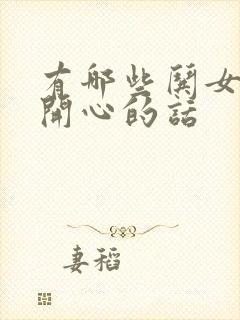 有哪些鬨女
開心的話
妻稻